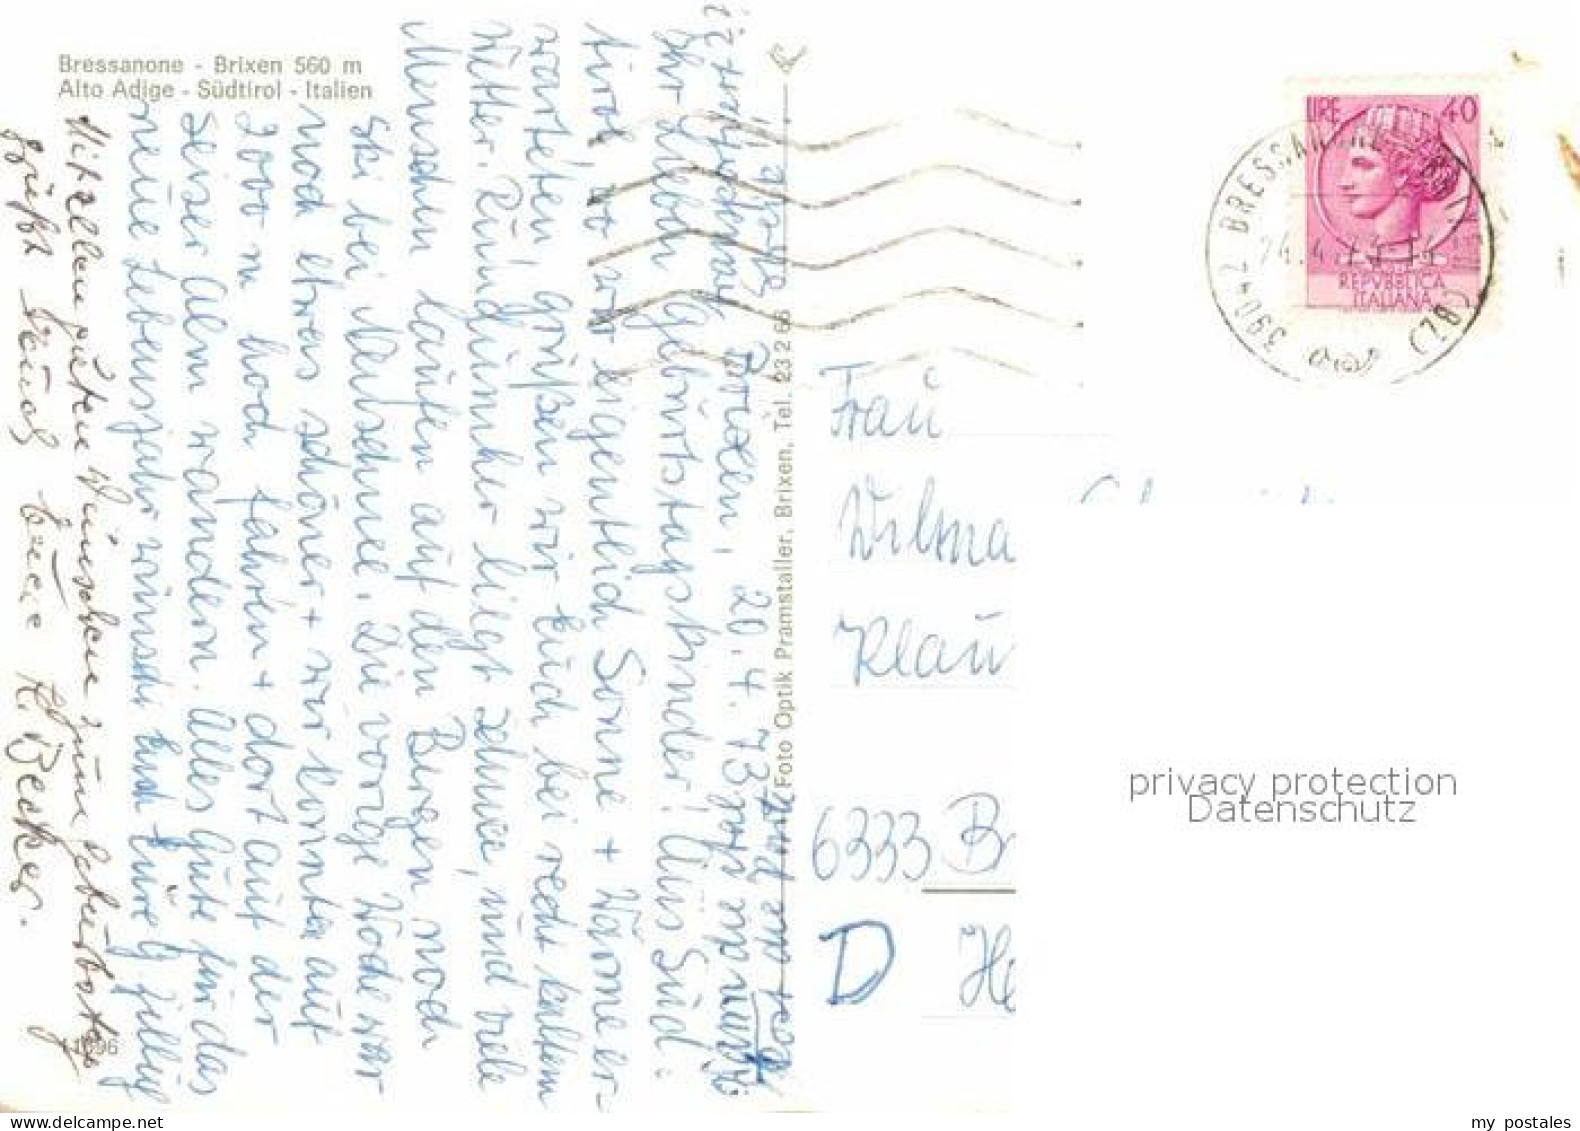 Bressanone - Brixen 560 m
Alto Adige - Südtirol - Italien
Brixen, 20.4.73
Ihr lieben Geburtstagskinder! Aus Süd-
tirol, wo wir eigentlich Sonne + Wärme er-
warteten, grüßen wir Euch bei recht kaltem
Wetter. Rundumher liegt Schnee, und viele
Menschen laufen auf den Bergen noch
Ski bei Neuschnee. Die vorige Woche war
noch etwas schöner + wir konnten auf
2000 m hoch fahren + dort auf der
Seiser Alm wandern. Alles Gute für das
neue Lebensjahr wünscht Euch Eure G. Zillig
Mit allen guten Wünschen zum Geburtstag
grüßt Euch Eure K. Becker.
Foto Optik Pramstaller, Brixen, Tel. 23266
11096
LIRE 40
REPVBBLICA
ITALIANA
39042 BRESSANONE
(BZ)
Frau
Wilma
Klau
6333 B
D He
privacy protection
Datenschutz
my postales